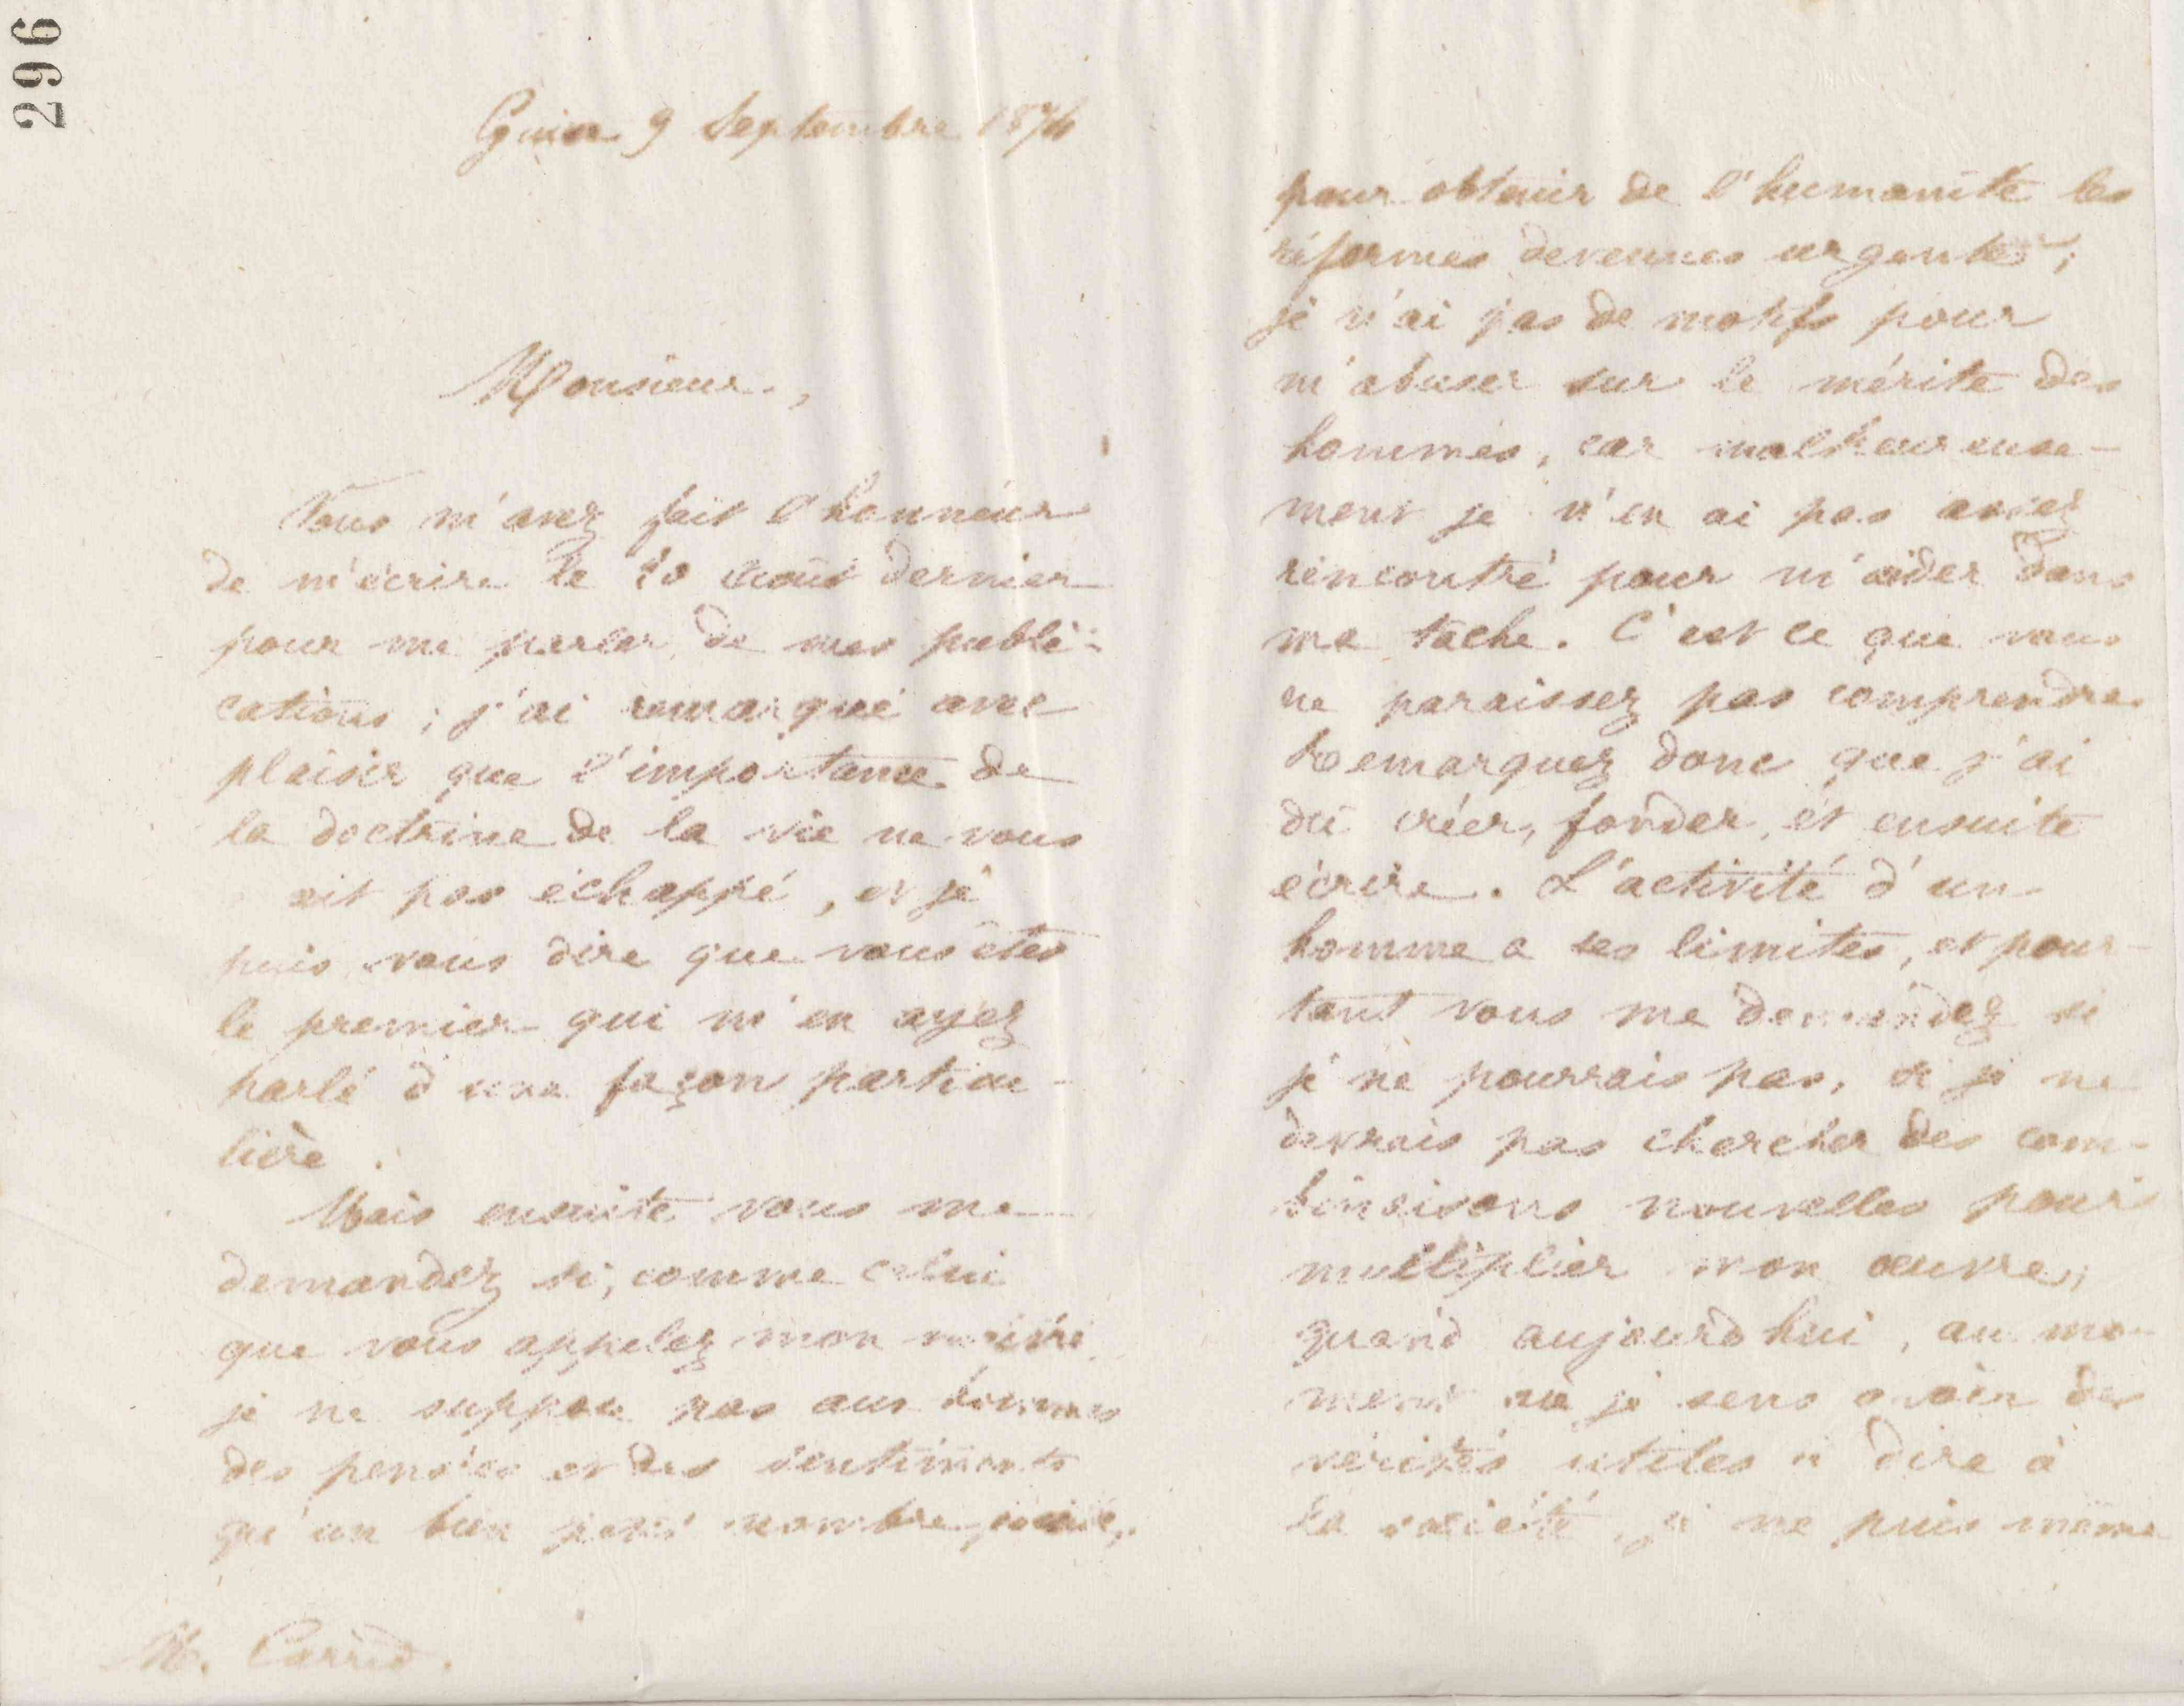 296
Guise 9 Septembre 1876
Monsieur,
Vous m'avez fait l'honneur
de m'écrire le 20 août dernier
pour me parler de mes publi-
cations ; j'ai remarqué avec
plaisir que l'importance de
la doctrine de la vie ne vous
ait pas échappé, et je
puis vous dire que vous êtes
le premier qui m'en ayez
parlé d'une façon particu-
lière.
Mais ensuite vous me
demandez si, comme celui
que vous appelez mon maître
je ne suppose pas aux hommes
des pensées et des sentiments
qu'un bien petit nombre
M.
pour obtenir de l'humanité les
réformes devenues urgentes ;
je n'ai pas de motifs pour
m'abuser sur le mérite des
hommes, car malheureuse-
ment je n'en ai pas assez
rencontré pour m'aider dans
ma tâche. C'est ce que vous
ne paraissez pas comprendre.
Remarquez donc que j'ai
dû créer, fonder, et ensuite
écrire. L'activité d'un
homme a ses limites, et pour-
tant vous me demandez si
je ne pourrais pas, si je ne
devrais pas chercher des com-
binaisons nouvelles pour
multiplier mon œuvre,
quand aujourd'hui, au mo-
ment où je sens avoir des
vérités utiles à dire à
la société, je ne puis même